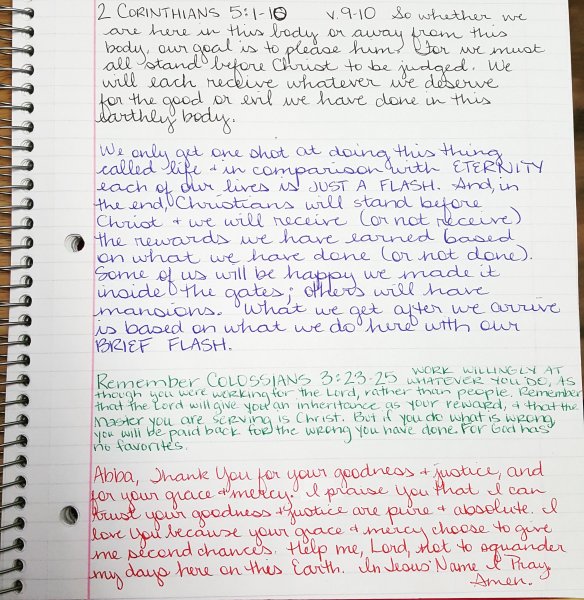 2 CORINTHIANS 5:1-10 v.9-10 So whether we
are here in this body or away from this
body, our goal is to please him. For we must
all stand before Christ to be judged. We
will each receive whatever we deserve
for the good or evil we have done in this
earthly body.
We only get one shot at doing this thing
called life + in comparison with ETERNITY
each of our lives is JUST A FLASH. And, in
the end, Christians will stand before
Christ + we will receive (or not receive)
the rewards we have earned based
on what we have done (or not done).
Some of us will be happy we made it
inside the gates; others will have
mansions. What we get after we arrive
is based on what we do here with our
BRIEF FLASH.
Remember COLOSSIANS 3:23-25 WORK WILLINGLY AT
WHATEVER YOU DO, AS
though you were working for the Lord, rather than people. Remember
that the Lord will give you an inheritance as your reward, + that the
Master you are serving is Christ. But if you do what is wrong,
you will be paid back for the wrong you have done. For God has
no favorites.
Abba, Thank You for your goodness + justice, and
for your grace + mercy. I praise you that I can
trust your goodness + justice are pure + absolute. I
love You because your grace + mercy choose to give
me second chances. Help me, Lord, not to squander
my days here on this Earth. In Jesus' Name I Pray,
Amen.